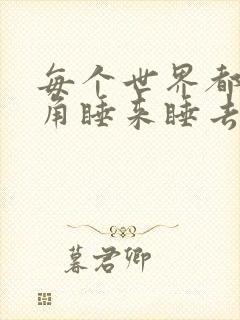 每个世界都
角睡来睡去
暮君卿